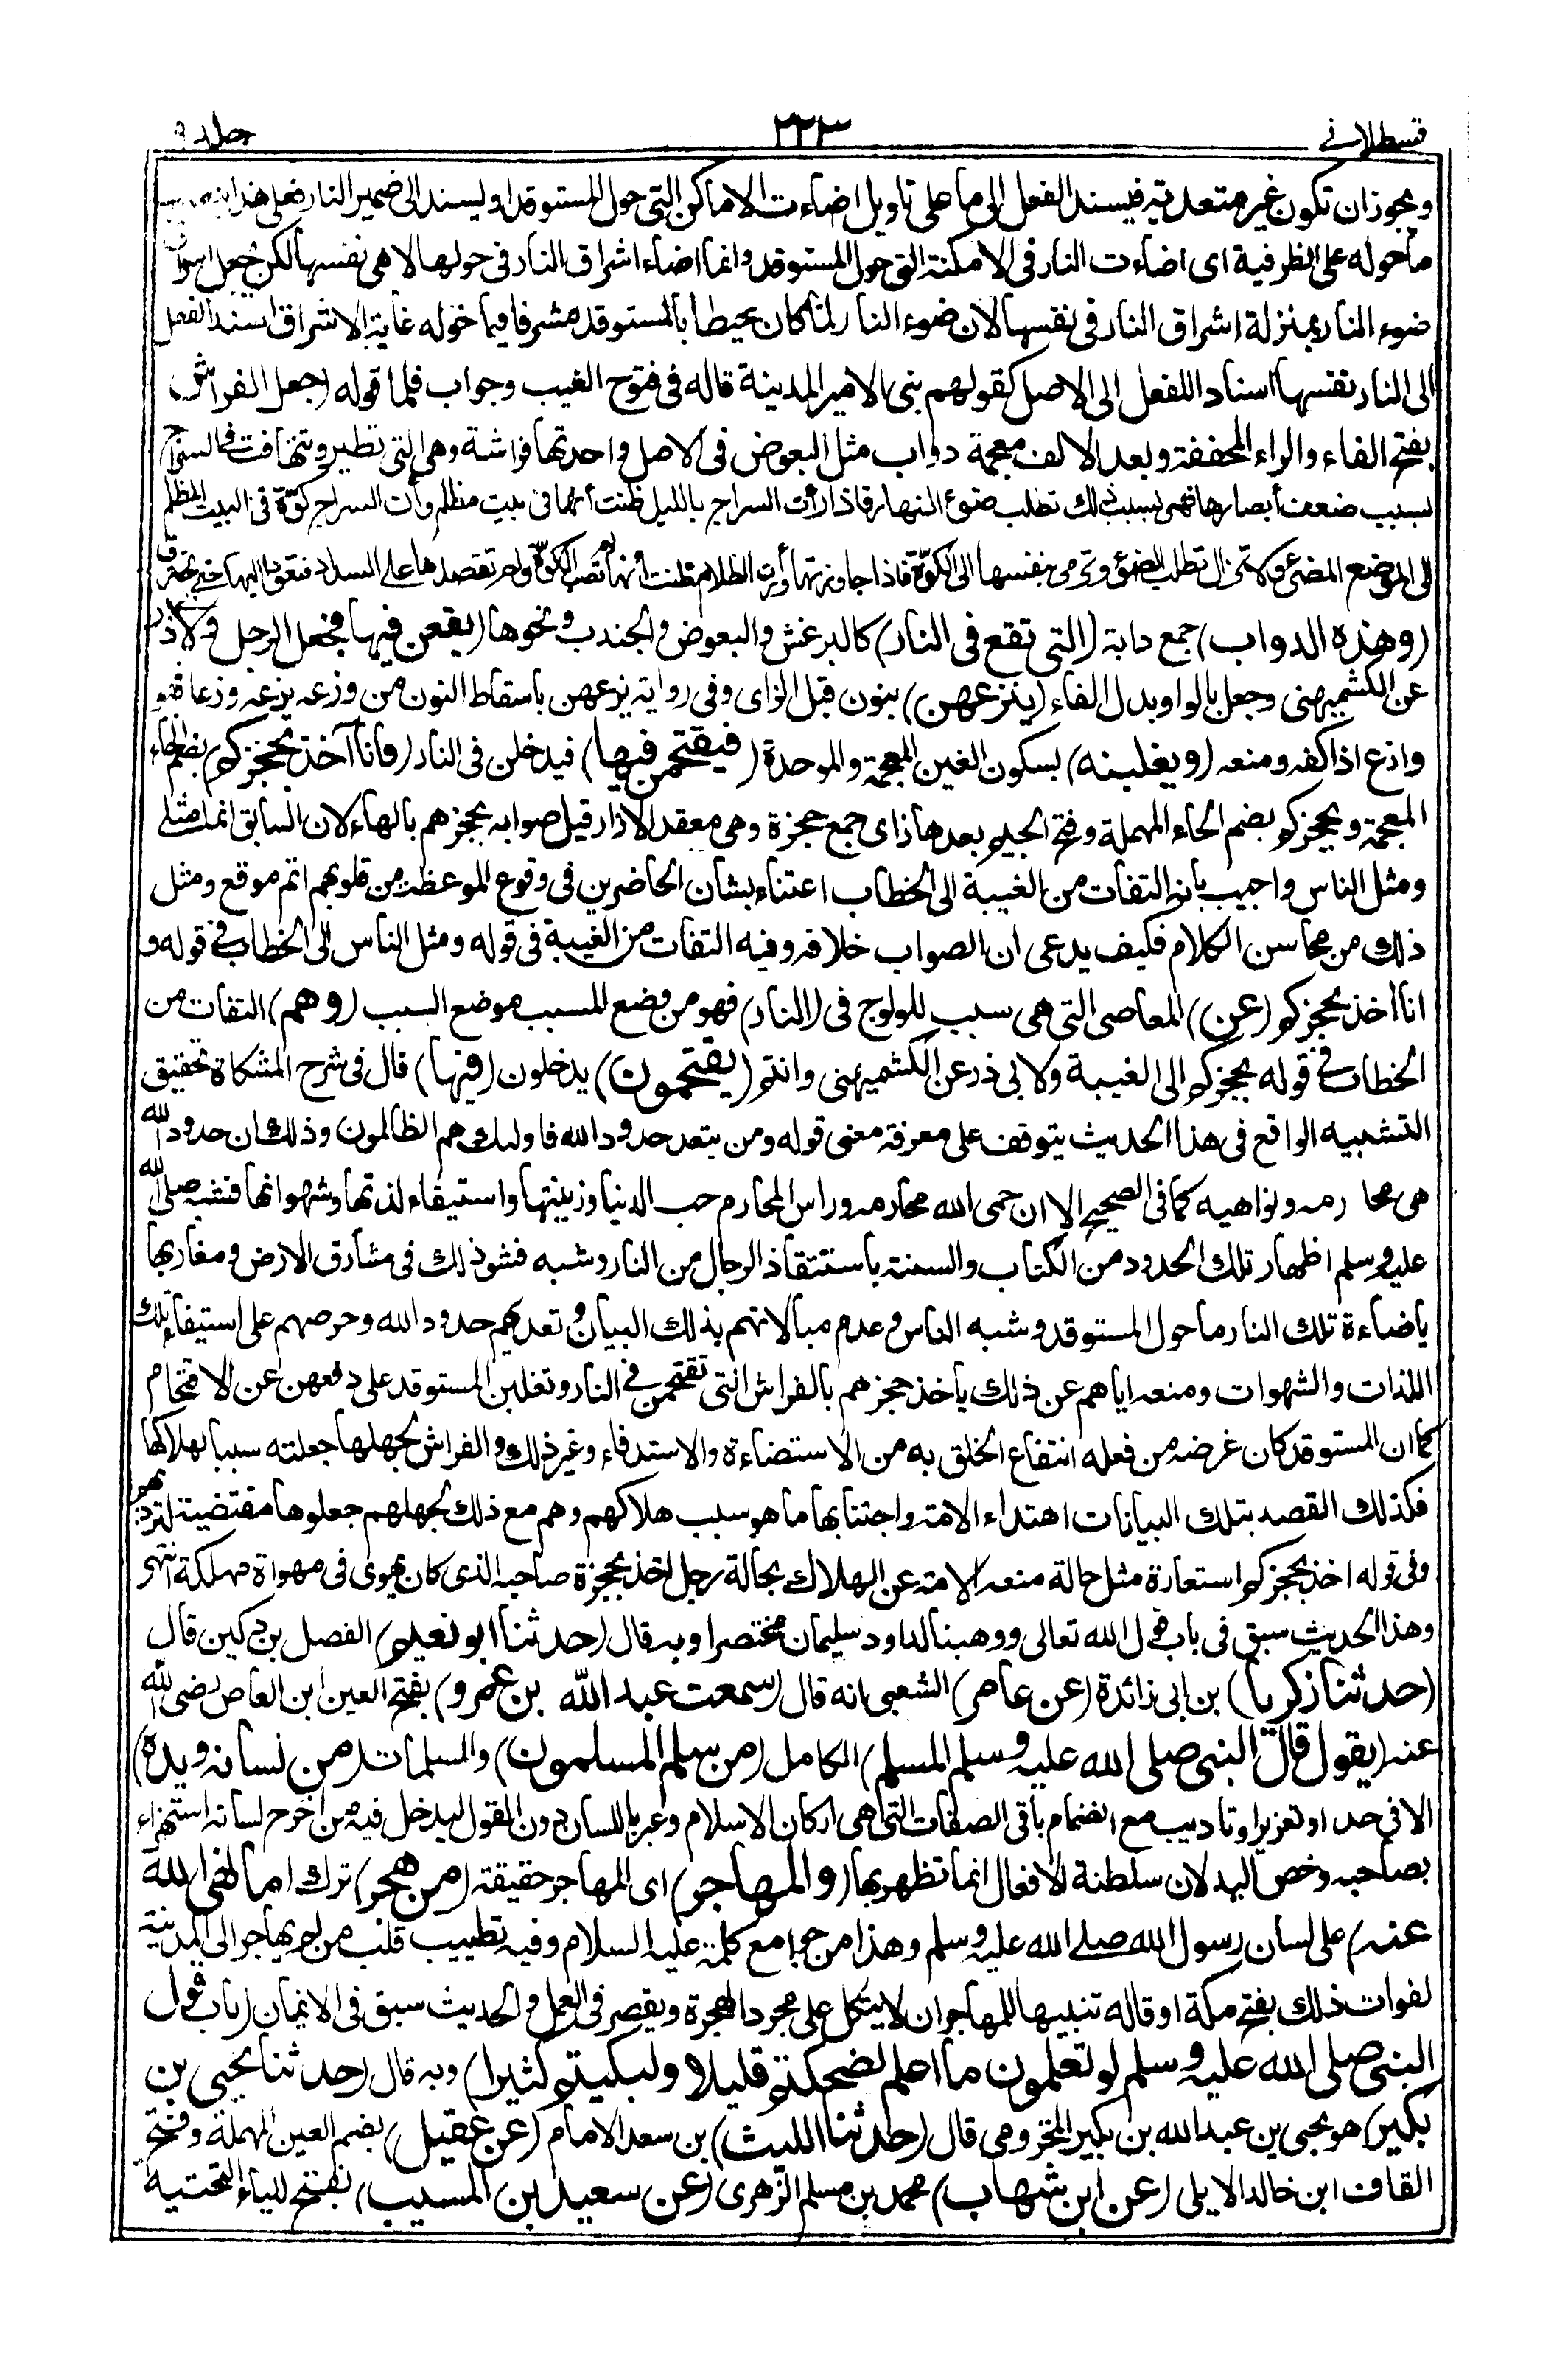 قسطلانى
٣٢٣
جلد ٩
ويجوز ان تكون غير متعدية فيسند الفعل الى ما على تاويل اضاءت الاماكن التى حول المستوقد او يسند الى ضمير النار فعلى هذا
ما حوله على الظرفية اى اضاءت النار فى الامكنة التى حول المستوقد وانما اضاء اشراق النار فى حولها لا هى نفسها لكن جعل
ضوء النار بمنزلة اشراق النار فى نفسها لان ضوء النار لما كان محيطا بالمستوقد مشرفا فيما حوله غاية الاشراق اسند الفعل
الى النار نفسها اسناد اللفعل الى الاصل كقولهم بنى الامير المدينة قاله فى فتوح الغيب وجواب فلما قوله (جعل الفراش
بفتح الفاء والراء المخففة وبعد الالف معجمة دواب مثل البعوض فى الاصل واحدتها فراشة وهى التى تطير وتتهافت فى السراج
بسبب ضعف أبصارها فهى بسبب ذلك تطلب ضوء النهار فاذا رأت السراج بالليل ظنت أنها فى بيت مظلم وأن السراج كوّة فى البيت المظلم
الى الموضع المضئ ولا تزال تطلب الضوء وترمى بنفسها الى الكوّة فاذا جاوزتها ورأت الظلام ظنت أنها لم تصب الكوّة ولم تقصدها على السداد فتعود اليها حتى تحترق
(وهذه الدواب) جمع دابة (التى تقع فى النار) كالبرغش والبعوض والجندب ونحوها (يقعن فيها فجعل الرجل ولابى ذر
عن الكشميهنى وجعل بالواو بدل الفاء (ينزعهن) بنون قبل الزاى وفى رواية يزعهن باسقاط النون من وزعه يزعه وزعا فهو
وازع اذا كفه ومنعه (ويغلبنه) بسكون الغين المعجمة والموحدة (فيقتحمن فيها) فيدخلن فى النار (فانا آخذ بحجزكم) بضم الخاء
المعجمة وبحجزكم بضم الحاء المهملة وفتح الجيم بعدها زاى جمع حجزة وهى معقد الازار قيل صوابه بحجزهم بالهاء لان السابق انما مثلى
ومثل الناس واجيب بانه التفات من الغيبة الى الخطاب اعتناء بشان الحاضرين فى وقوع الموعظة من قلوبهم اتم موقع ومثل
ذلك من محاسن الكلام فكيف يدعى ان الصواب خلافه وفيه التفات من الغيبة فى قوله ومثل الناس الى الخطاب فى قوله و
انا اخذ بحجزكم (عن) المعاصى التى هى سبب للولوج فى (النار) فهو من وضع المسبب موضع السبب (وهم) التفات من
الخطاب فى قوله بحجزكم الى الغيبة ولابى ذر عن الكشميهنى وانتم (يقتحمون) يدخلون (فيها) قال فى شرح المشكاة تحقيق
التشبيه الواقع فى هذا الحديث يتوقف على معرفة معنى قوله ومن يتعد حدود الله فاولئك هم الظالمون وذلك ان حدود الله
هى محارمه ونواهيه كما فى الصحيح الا ان حمى الله محارمه وراس المحارم حب الدنيا وزينتها واستيفاء لذتها وشهواتها فشبه صلى الله
عليه وسلم اظهار تلك الحدود من الكتاب والسنة باستنقاذ الرجال من النار وشبه فشو ذلك فى مشارق الارض ومغاربها
باضاءة تلك النار ما حول المستوقد وشبه الناس وعدم مبالاتهم بذلك البيان وتعديهم حدود الله وحرصهم على استيفاء تلك
اللذات والشهوات ومنعه اياهم عن ذلك بأخذ حجزهم بالفراش التى تقتحمن فى النار وتغلبن المستوقد على دفعهن عن الاقتحام
كما ان المستوقد كان غرضه من فعله انتفاع الخلق به من الاستضاءة والاستدفاء وغير ذلك والفراش لجهلها جعلته سببا لهلاكها
فكذلك القصد بتلك البيانات اهتداء الامة واجتنابها ما هو سبب هلاكهم وهم مع ذلك لجهلهم جعلوها مقتضية لترديهم
وفى قوله اخذ بحجزكم استعارة مثل حالة منعه الامة عن الهلاك بحالة رجل اخذ بحجزة صاحبه الذى كان يهوى فى مهواة مهلكة انتهى
وهذا الحديث سبق فى باب قول الله تعالى ووهبنا لداود سليمان مختصرا وبه قال (حدثنا ابو نعيم) الفضل بن دكين قال
(حدثنا زكريا) بن ابى زائدة (عن عامر) الشعبى انه قال (سمعت عبد الله بن عمرو) بفتح العين ابن العاص رضى الله
عنه (يقول قال النبى صلى الله عليه وسلم المسلم) الكامل (من سلم المسلمون) والمسلمات (من لسانه ويده)
الا فى حد او تعزير او تاديب مع انضمام باقى الصفات التى هى اركان الاسلام وعبر باللسان دون القول ليدخل فيه من اخرج لسانه استهزاء
بصاحبه وخص اليد لان سلطنة الافعال انما تظهر بها (والمهاجر) اى المهاجر حقيقة (من هجر) ترك (ما نهى الله
عنه) على لسان رسول الله صلى الله عليه وسلم وهذا من جوامع كلمه عليه السلام وفيه تطييب قلب من لم يهاجر الى المدينة
لفوات ذلك بفتح مكة او قاله تنبيها للمهاجر ان لا يتكل على مجرد الهجرة ويقصر فى العمل والحديث سبق فى الايمان (باب قول
النبى صلى الله عليه وسلم لو تعلمون ما اعلم لضحكتم قليلا ولبكيتم كثيرا) وبه قال (حدثنا يحيى بن
بكير) هو يحيى بن عبد الله بن بكير المخزومى قال (حدثنا الليث) بن سعد الامام (عن عقيل) بضم العين المهملة وفتح
القاف ابن خالد الايلى (عن ابن شهاب) محمد بن مسلم الزهرى (عن سعيد بن المسيب) بفتح الياء التحتية